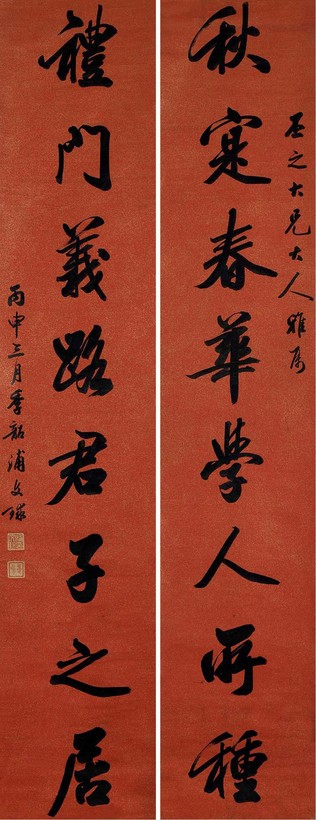 秋寔春華學人所種
之大兄大人雅属
禮門義路君子之居
丙申三月季韶浦文球